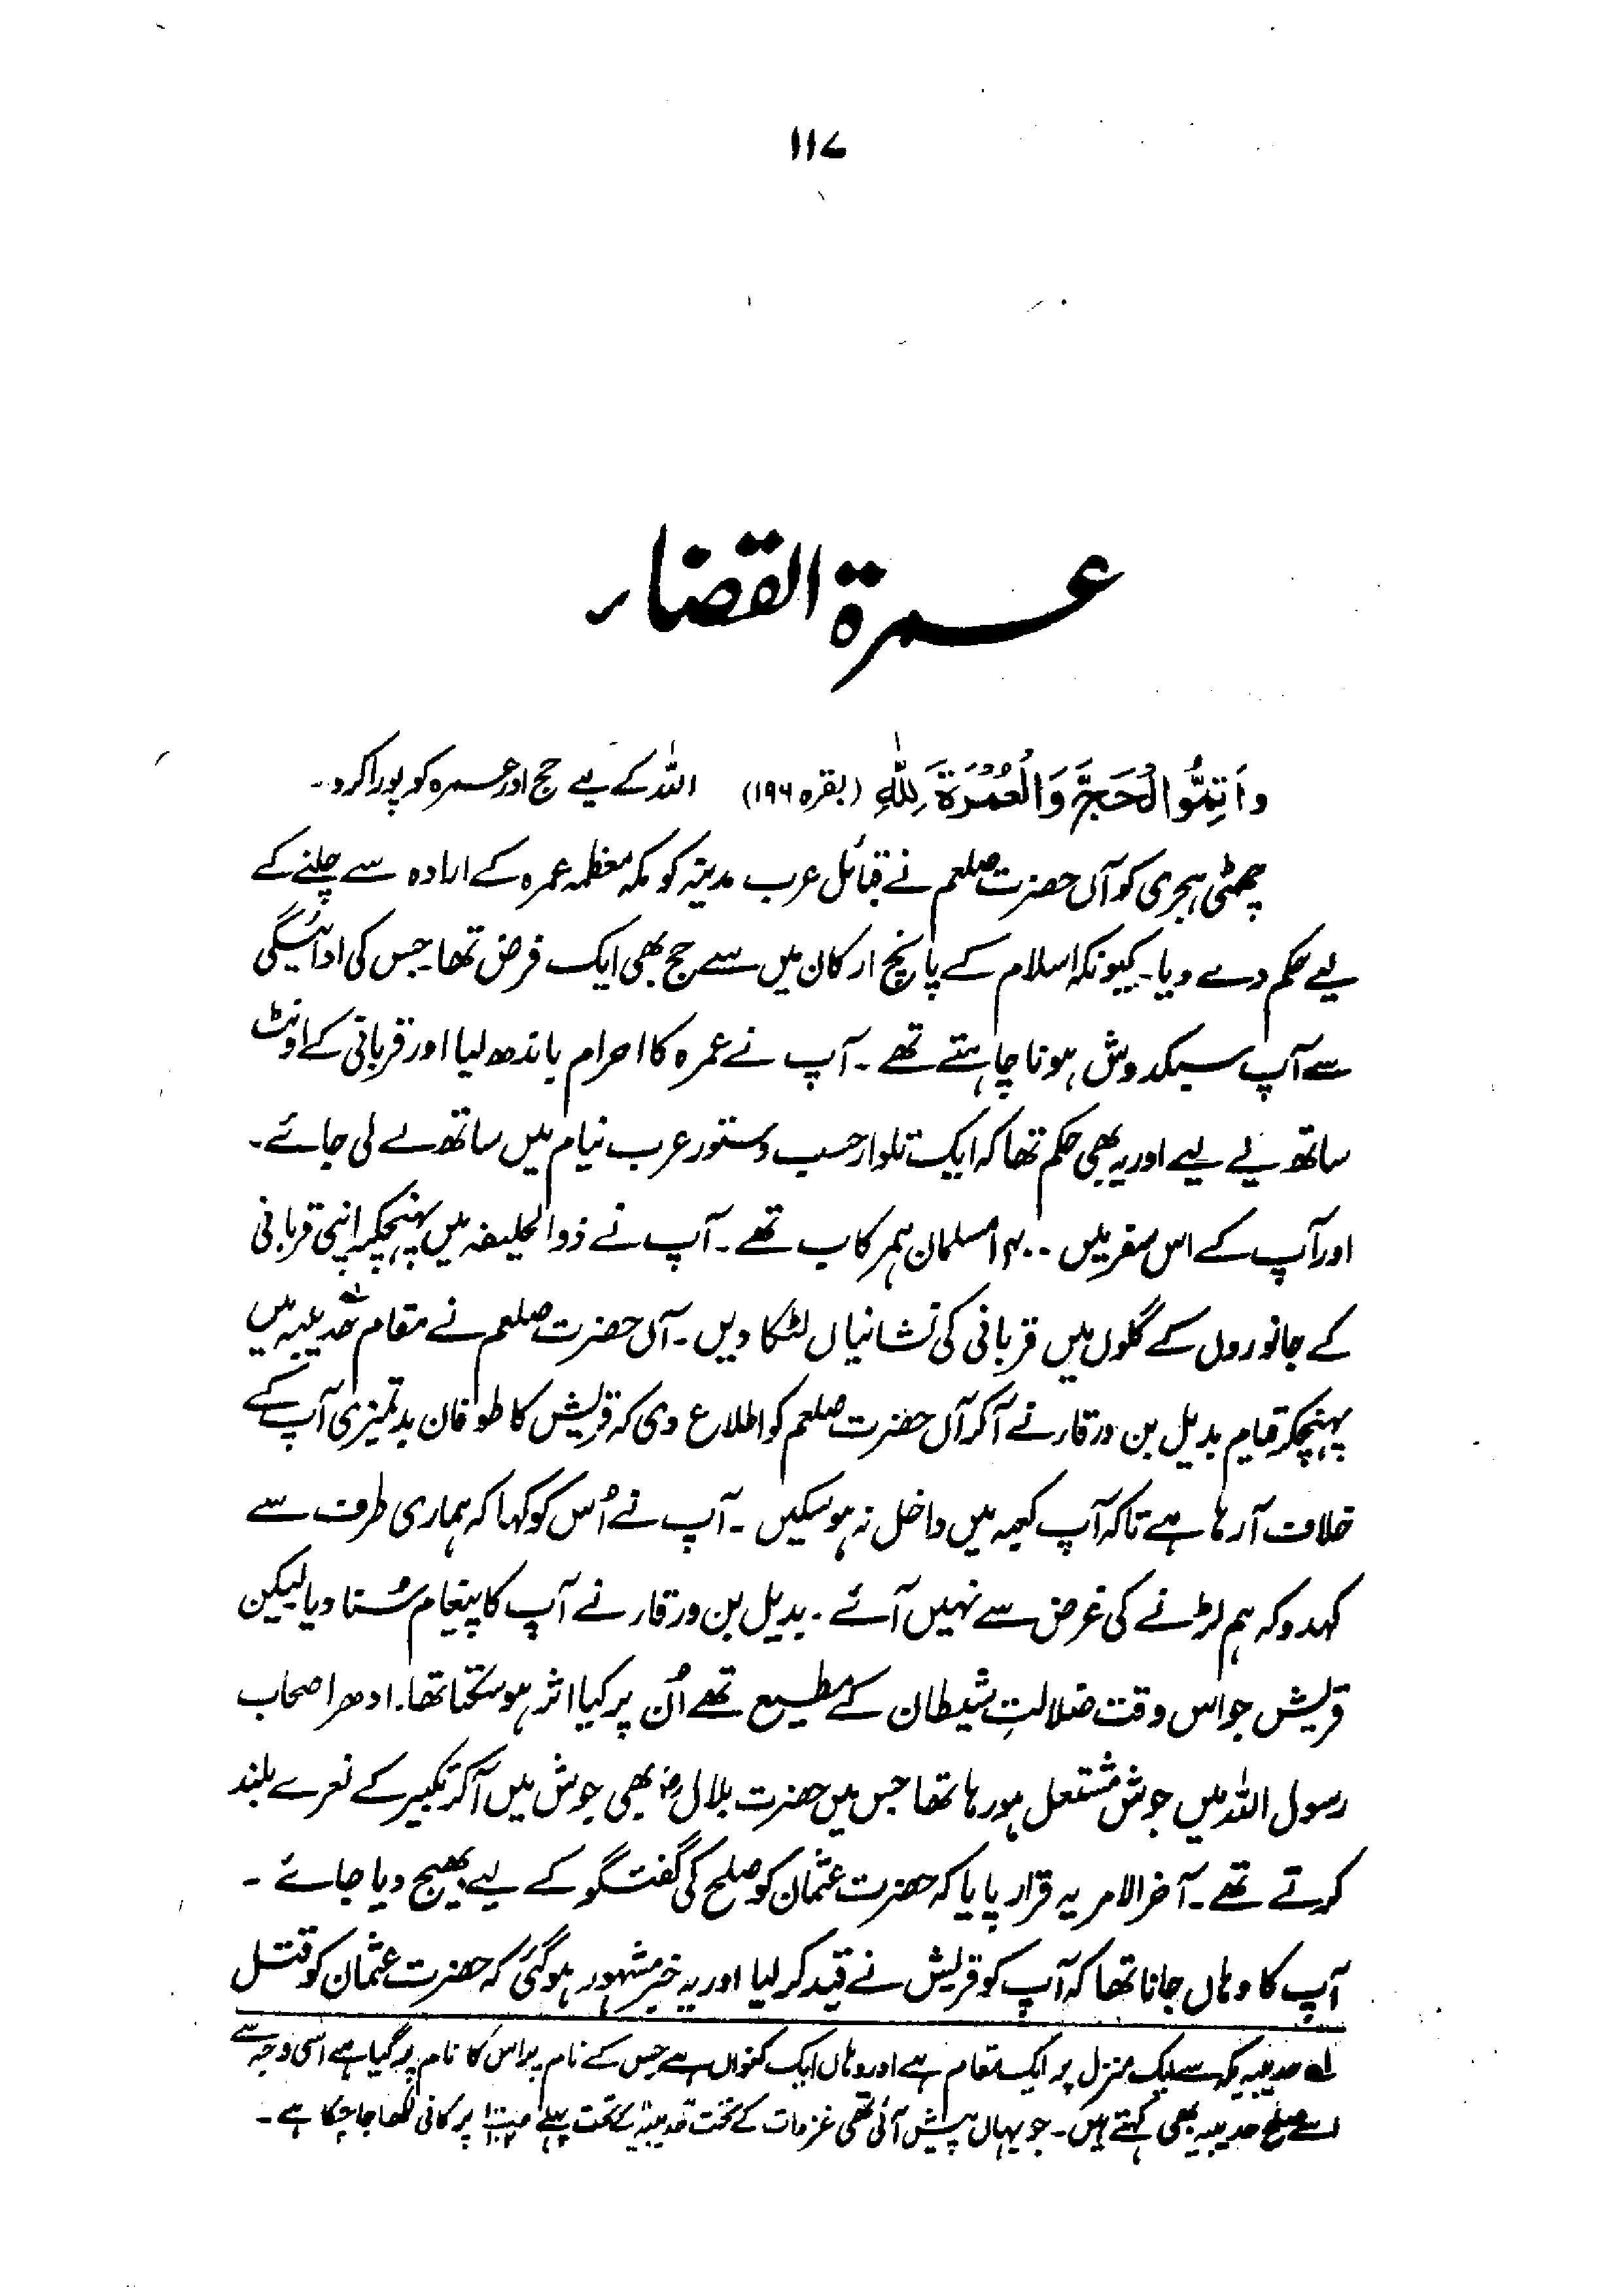 ۱۱۷
عمرة القضاء
وَاَتِمُّوا الْحَجَّ وَالْعُمْرَةَ لِلّٰهِ (بقرہ ۱۹۶) اللہ کے لیے حج اور عمرہ کو پورا کرو۔
چھٹی ہجری کو آں حضرت صلعم نے قبائل عرب مدینہ کو مکہ معظمہ عمرہ کے ارادہ سے چلنے کے
لیے حکم دے دیا۔ کیونکہ اسلام کے پانچ ارکان میں سے حج بھی ایک فرض تھا جس کی ادائیگی
سے آپ سبکدوش ہونا چاہتے تھے۔ آپ نے عمرہ کا احرام باندھ لیا اور قربانی کے اونٹ
ساتھ لے لیے اور یہ بھی حکم تھا کہ ایک تلوار حسب دستور عرب نیام میں ساتھ لے لی جائے۔
اور آپ کے اس سفر میں ۱۴۰۰ مسلمان ہمرکاب تھے۔ آپ نے ذوالحلیفہ میں پہنچکر اپنی قربانی
کے جانوروں کے گلوں میں قربانی کی نشانیاں لٹکا دیں۔ آں حضرت صلعم نے مقام حدیبیہ لہ میں
پہنچکر قیام بدیل بن ورقار نے آکر آں حضرت صلعم کو اطلاع دی کہ قریش کا طوفان بدتمیزی آپ کے
خلاف آرہا ہے تاکہ آپ کعبہ میں داخل نہ ہوسکیں۔ آپ نے اُس کو کہا کہ ہماری طرف سے
کہدو کہ ہم لڑنے کی غرض سے نہیں آئے۔ بدیل بن ورقار نے آپ کا پیغام سُنا دیا لیکن
قریش جو اس وقت ضلالتِ شیطان کے مطیع تھے اُن پر کیا اثر ہوسکتا تھا۔ ادھر اصحاب
رسول اللہ میں جوش مشتعل ہورہا تھا جس میں حضرت بلال رضؓ بھی جوش میں آکر تکبیر کے نعرے بلند
کرتے تھے۔ آخر الامر یہ قرار پایا کہ حضرت عثمان کو صلح کی گفتگو کے لیے بھیج دیا جائے۔
آپ کا وہاں جانا تھا کہ آپ کو قریش نے قید کر لیا اور یہ خبر مشہور ہوگئی کہ حضرت عثمان کو قتل
لہ حدیبیہ مکہ سے ایک منزل پر ایک مقام ہے اور وہاں ایک کنواں ہے جس کے نام پر اس کا نام پڑ گیا ہے اسی وجہ سے
اسے صلح حدیبیہ بھی کہتے ہیں۔ جو یہاں پیش آئی تھی غزوات کے تحت حدیبیہ کے تحت پہلے پر کافی لکھا جا چکا ہے۔